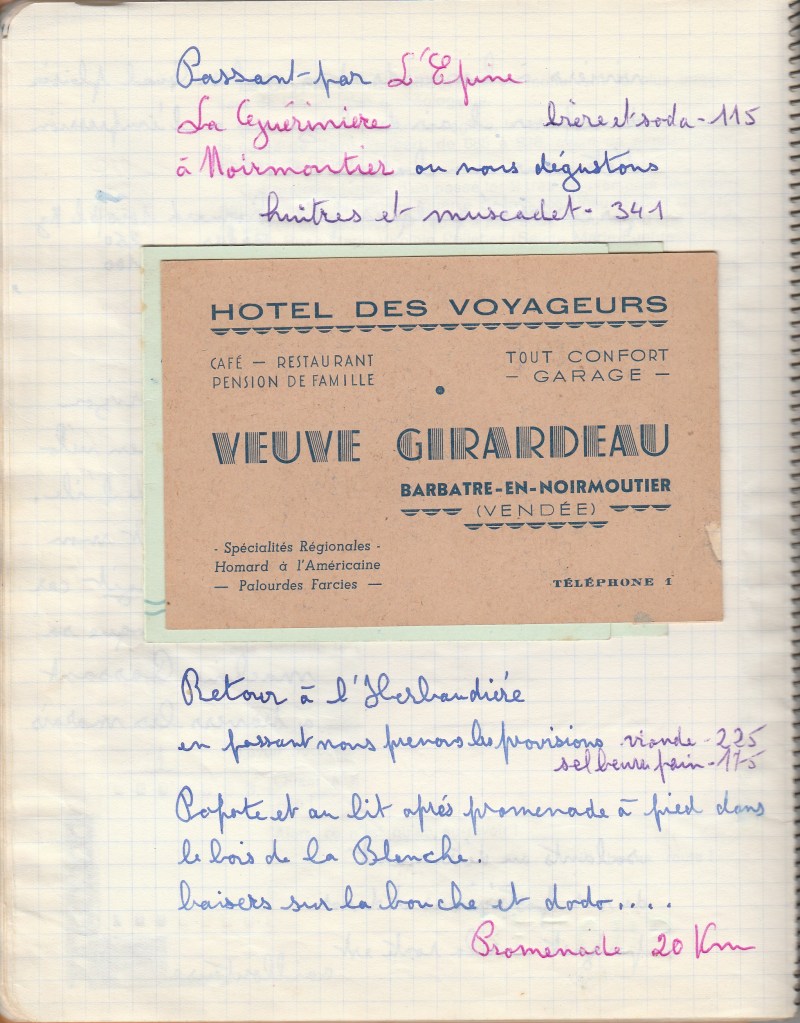 Passant-par L'Epine
La Guérinière bière et soda - 115
à Noirmoutier ou nous dégustons
huitres et muscadet - 341
HOTEL DES VOYAGEURS
CAFÉ — RESTAURANT TOUT CONFORT
PENSION DE FAMILLE — GARAGE —
VEUVE GIRARDEAU
BARBATRE-EN-NOIRMOUTIER
(VENDÉE)
- Spécialités Régionales -
Homard à l'Américaine
— Palourdes Farcies — TÉLÉPHONE 1
Retour à l'Herbaudiére
en passant nous prenons les provisions viande - 225
sel beurre pain - 175
Popote et au lit aprés promenade à pied dans
le bois de la Blanche.
baisers sur la bouche et dodo....
Promenade 20 Km